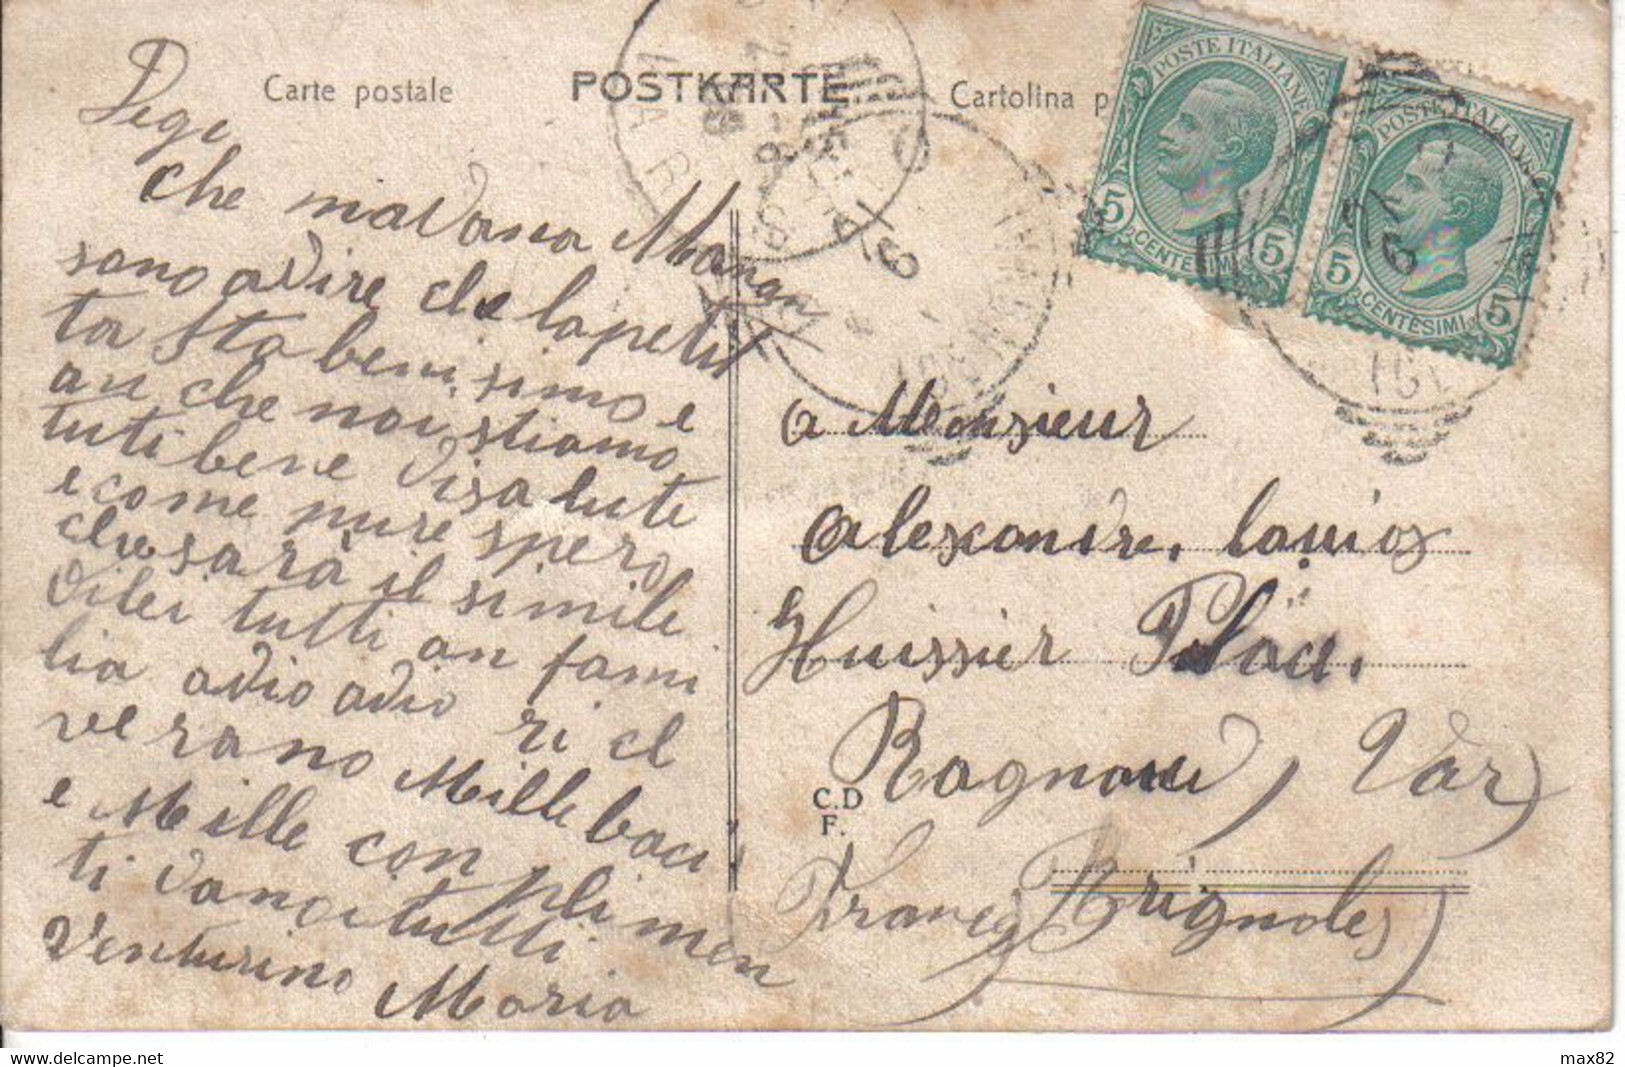 Carte postale POSTKARTE Cartolina p
POSTE ITALIANE
5 CENTESIMI 5
POSTE ITALIANE
5 CENTESIMI 5
che
sono a dire che la peti
ta sta benisimo e
an che noi stiamo
tuti bene di salute
e come pure spero
che sarà il simile
di lei tutti an fami
lia adio adio ri cl
ve rano Mille baci
e Mille con plimen
ti da noi tutti
Venturino Maria
a Monsieur
Alexandre,
Huissier Place,
C.D
F.
Var
France Brignoles
max82